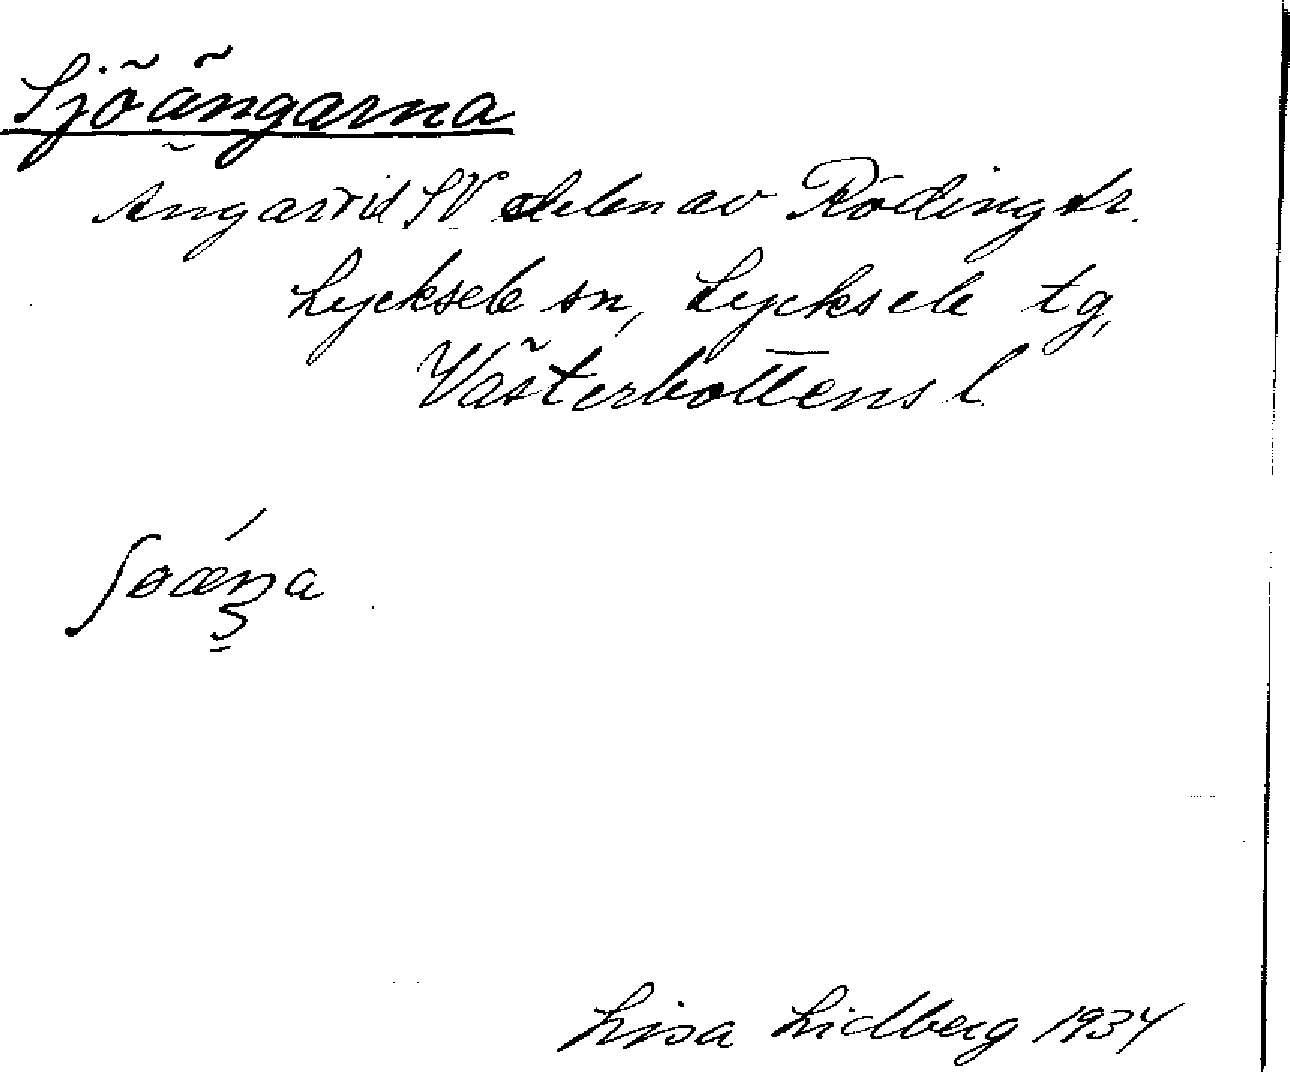 Sjöängarna
Ängar vid SV delen av Rödingtr.
Lycksele sn, Lycksele tg,
Västerbottens l.
Lisa Lidberg 1934